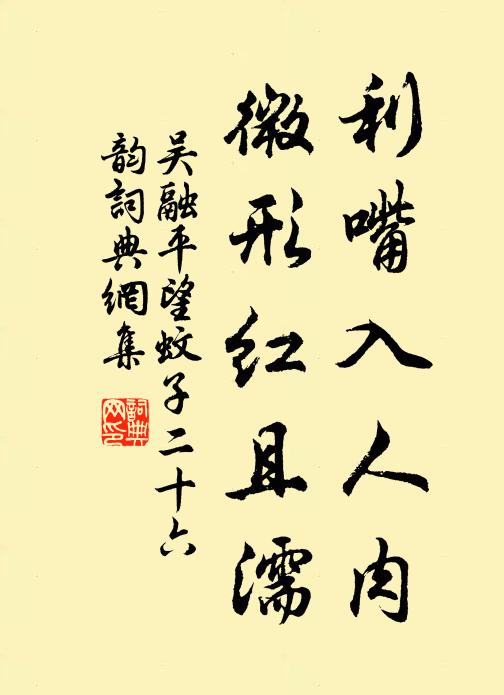 利嘴入人肉
微形红且濡
吴融平望蚊子二十六
韵詞典網集
詞典
网印